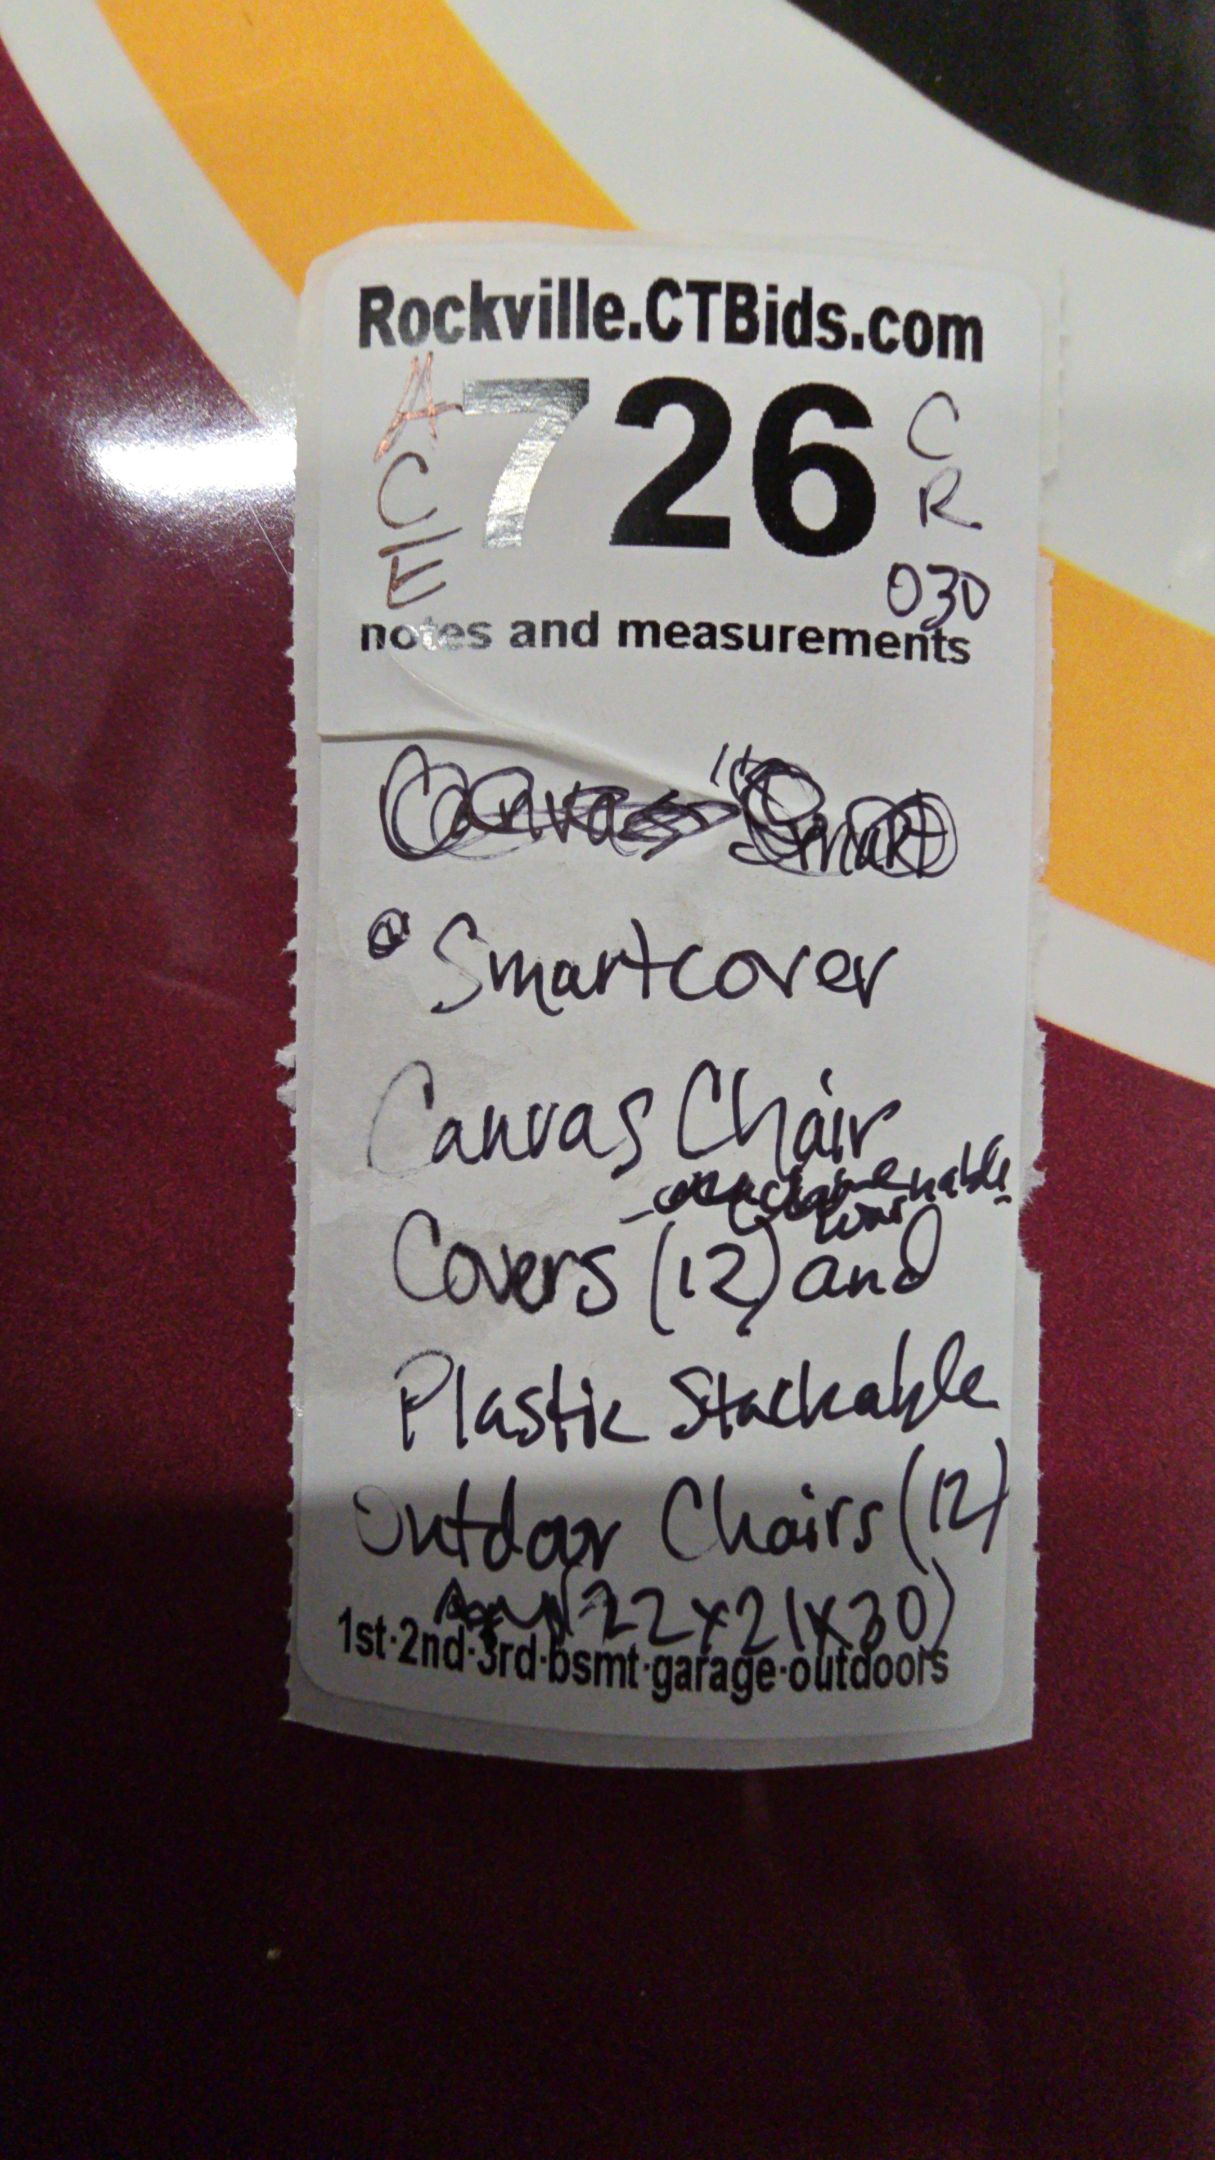 Rockville.CTBids.com
A 726 C
C R
E 030
notes and measurements
Canvas "Smart
Smartcover
Canvas Chair
Covers (12) and
Plastic Stackable
Outdoor Chairs (12)
(22x21x30)
1st·2nd·3rd·bsmt·garage·outdoors